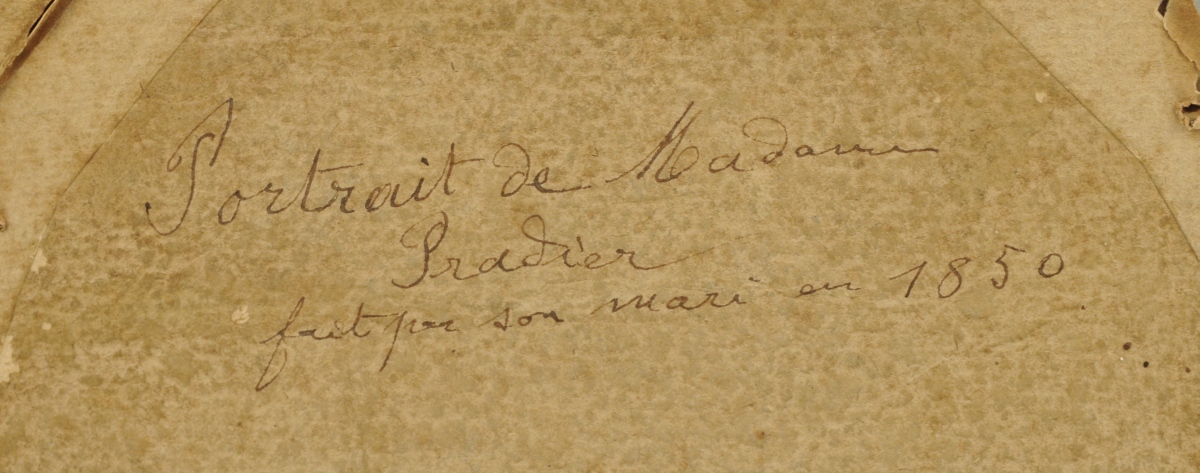 Portrait de Madame
Pradier
fait par son mari en 1850